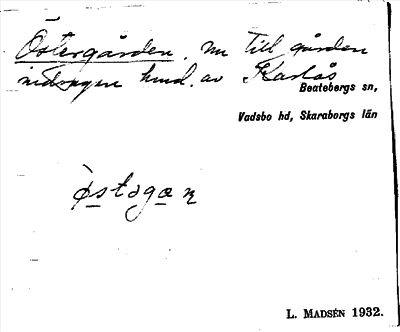 Östergården, nu till gården
indragen hmd. av Karlås
Beatebergs sn,
Vadsbo hd, Skaraborgs län
L. MADSÉN 1932.